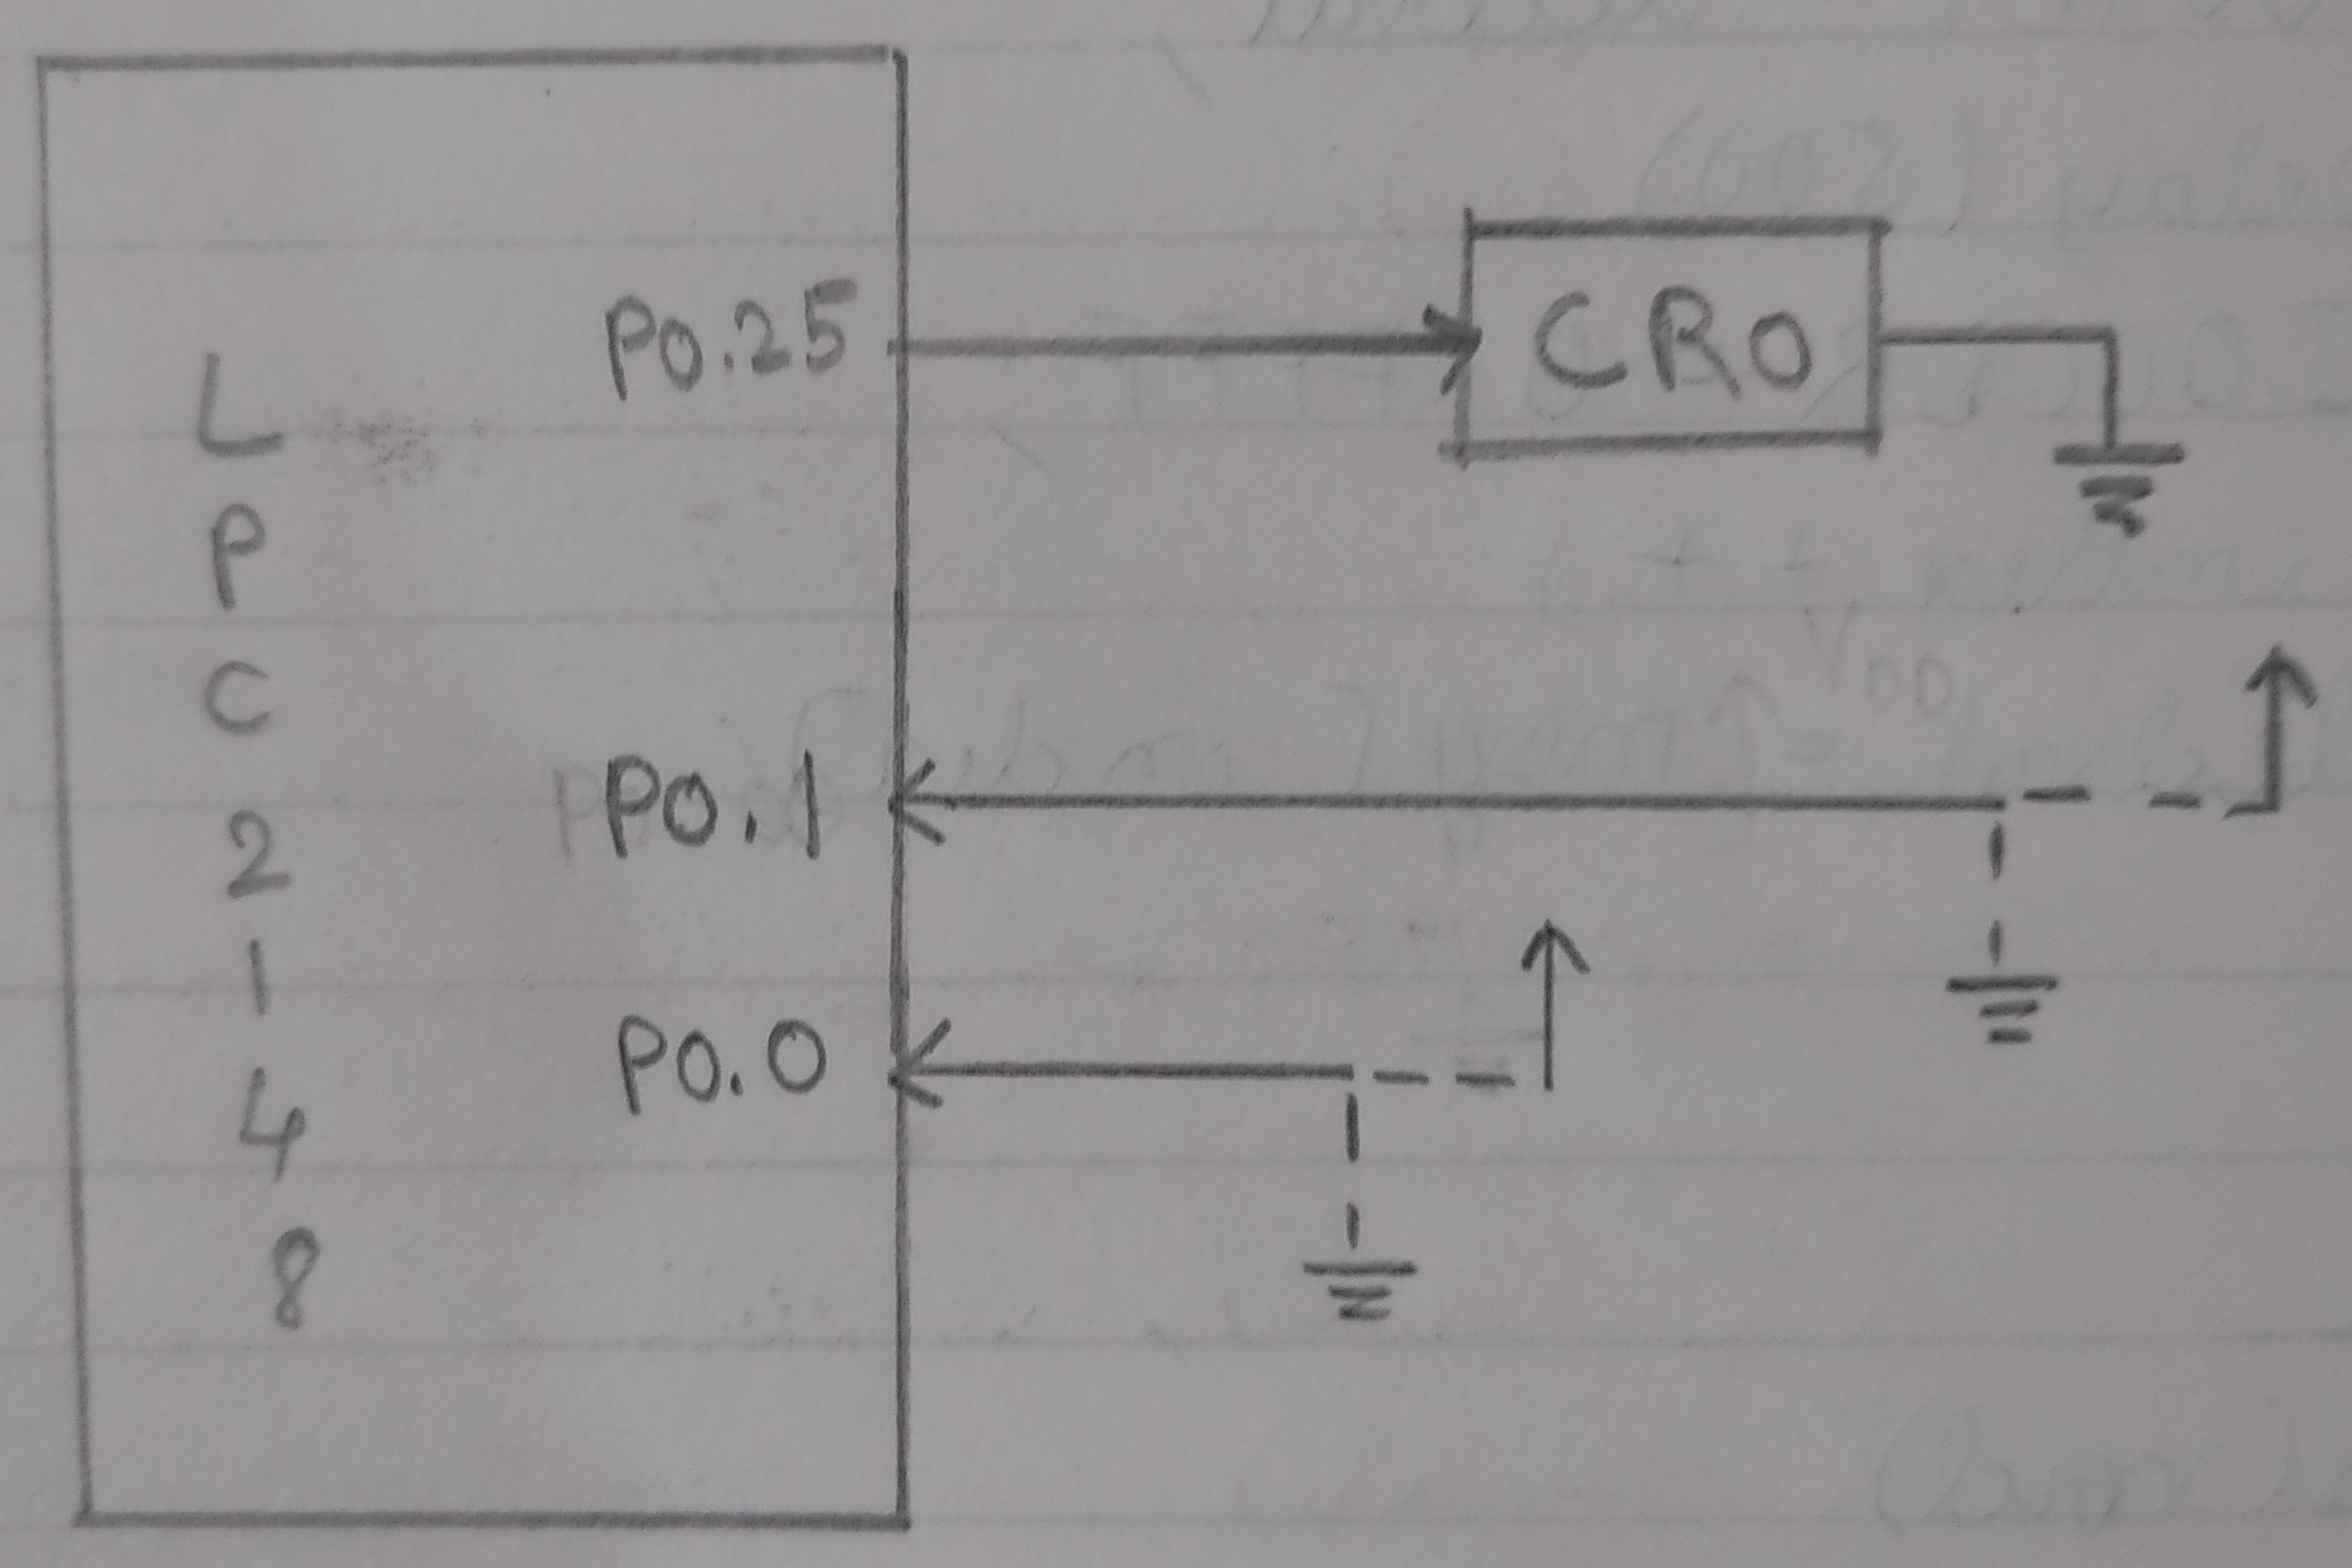 LPC2148
P0.25
CRO
P0.1
P0.0